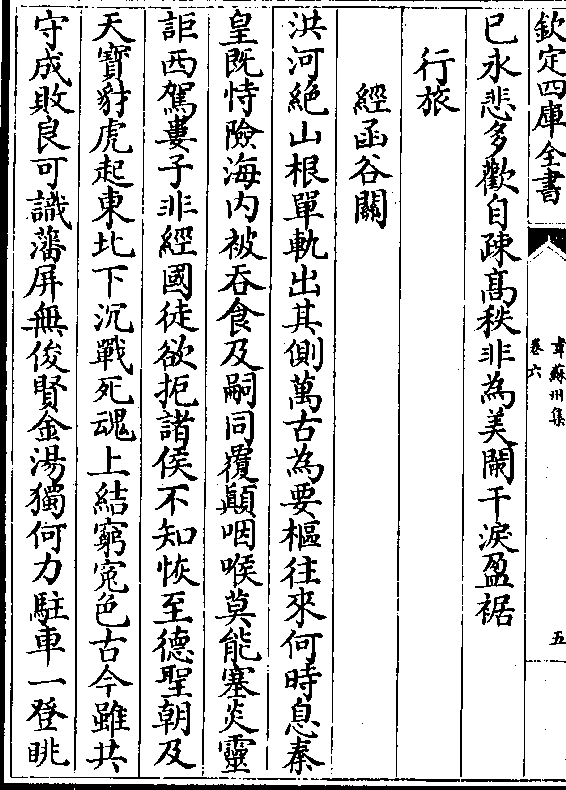 欽定四庫全書
韋蘇州集
卷六
五
已永悲多歡自疎髙秩非為美闌干淚盈裾
行旅
經函谷關
洪河絶山根單軌出其側萬古為要樞往來何時息秦
皇既恃險海内被吞食及嗣同覆顛咽喉莫能塞炎靈
詎西駕婁子非經國徒欲扼諸侯不知恢至德聖朝及
天寶豺虎起東北下沉戰死魂上結窮寃色古今雖共
守成敗良可識藩屏無俊賢金湯獨何力駐車一登眺